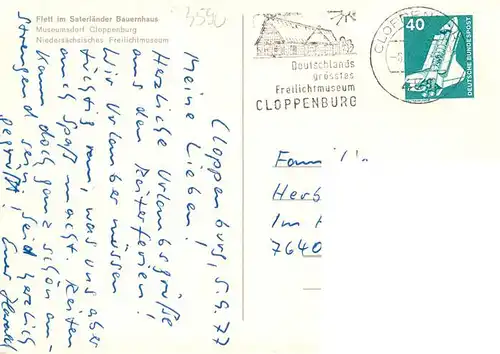 Flett im Saterländer Bauernhaus
Museumsdorf Cloppenburg
Niedersächsisches Freilichtmuseum
3590
Deutschlands
grösstes
Freilichtmuseum
CLOPPENBURG
40
DEUTSCHE BUNDESPOST
Cloppenburg, 5.9.77
Meine Lieben!
Herzliche Urlaubsgrüße
aus den Reiterferien!
Wir Urlauber müssen
tüchtig ran, was uns aber
auch Spaß macht. Reiten
kann doch ganz schön an-
strengend sein. Seid herzlich
gegrüßt! Euer Harald
Herb
Im
7640